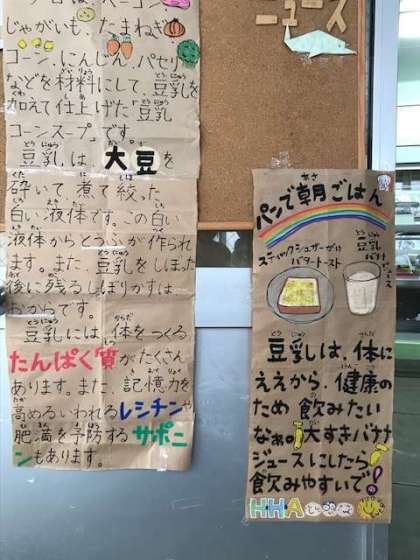 じゃがいも、たまねぎ
コーン、にんじん、パセリ
などを材料にして、豆乳を
加えて仕上げた「豆乳
コーンスープ」です。
豆乳は、大豆を
砕いて煮て絞った
白い液体です。この白い
液体からとうふが作られ
ます。また、豆乳をしぼった
後に残るしぼりかすは
おからです。
豆乳には体をつくる
たんぱく質がたくさん
あります。また、記憶力を
高めるいわれるレシチンや
肥満を予防するサポニ
ンもあります。
ニュース
パンで朝ごはん
スティックシュガーがけ
バタートースト
豆乳
バナナ
ジュース
豆乳は、体に
ええから、健康の
ため飲みたい
なぁ。大すきバナナ
ジュースにしたら
飲みやすいで!
HHA